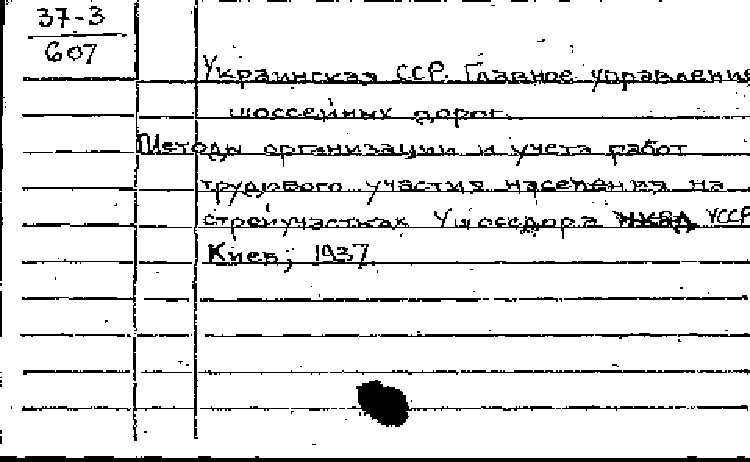 37-3
607
Украинская ССР. Главное управление
шоссейных дорог.
Методы организации и учета работ
трудового участия населения на
стройучастках Ушосдора НКВД УССР
Киев, 1937.